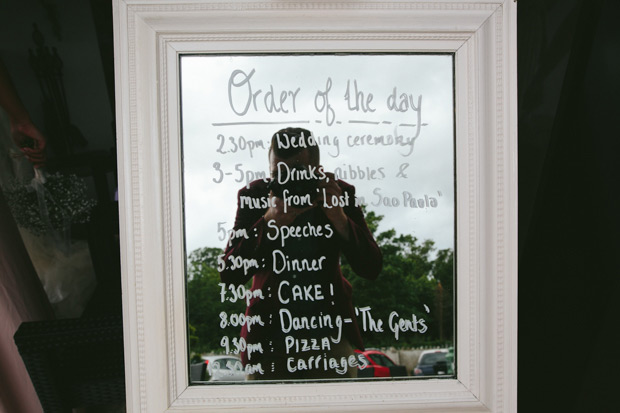 Order of the day
2.30pm: Wedding ceremony
3-5pm: Drinks, nibbles &
music from 'Lost in Sao Paulo'
5pm: Speeches
5.30pm: Dinner
7.30pm: CAKE!
8.00pm: Dancing-'The Gents'
9.30pm: PIZZA
12.30am: Carriages